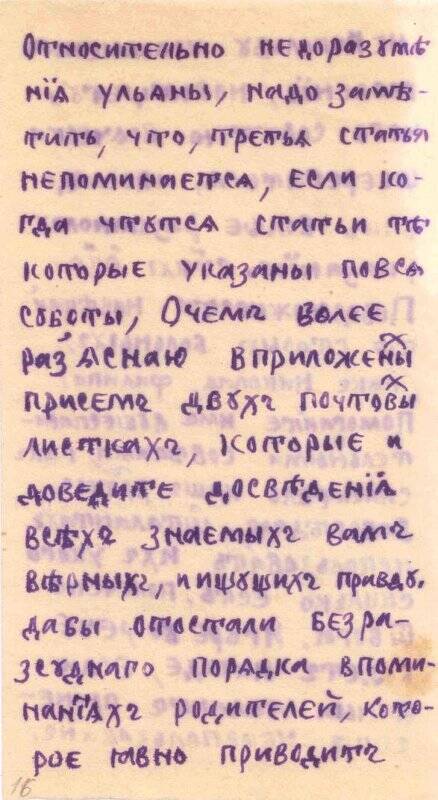 Относительно недоразумѣ
нія ульаны, надо замѣ-
тить, что, третья статья
непоминается, если ко-
гда чтутся статьи тѣ
которые указаны повся
сѵботы, Очемъ болѣе
раз̾ясняю вприложены х
присемъ двухъ почтовы х
листкахъ, которые и
доведите досвѣденія
всѣхъ знаемыхъ вамъ
вѣрныхъ, и ищущихъ правду.
дабы отостали безра-
зсуднаго порядка впоми-
наніяхъ родителей, кото-
рое явно приводитъ
16